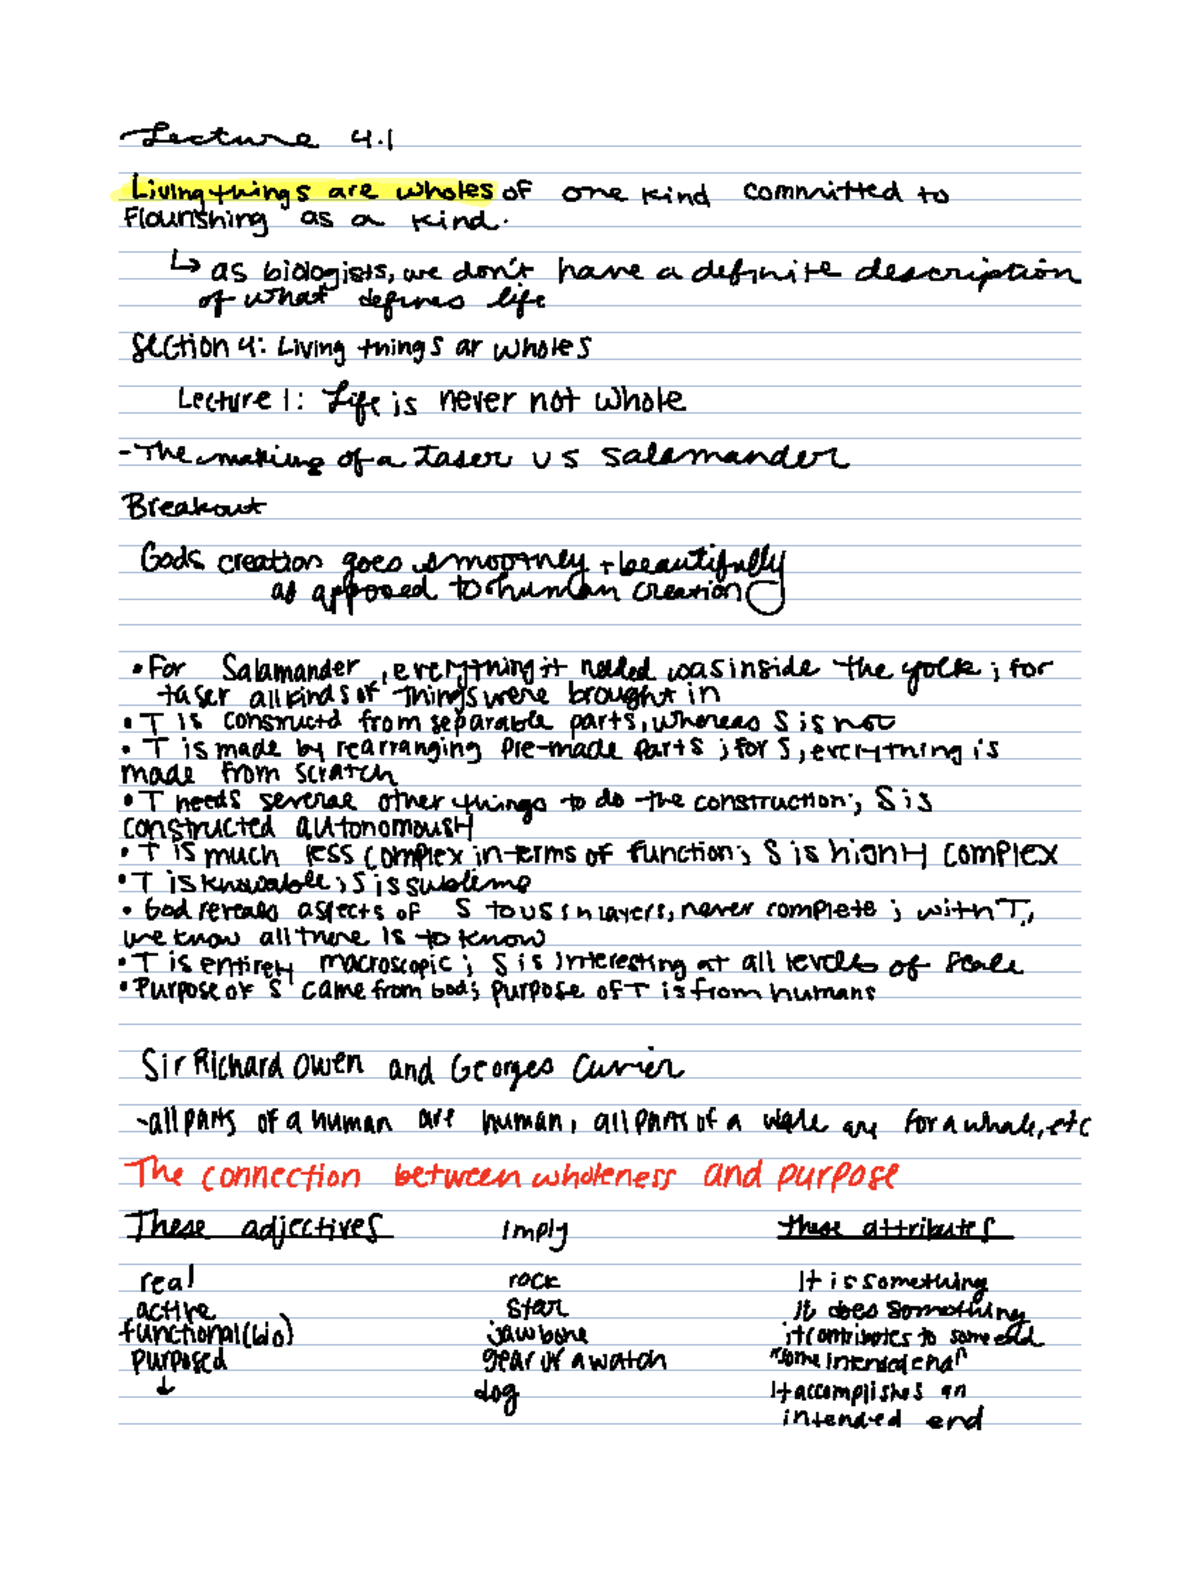 Lecture 4.1
Living things are wholes of one kind committed to
flourishing as a kind.
↳ as biologists, we don't have a definite description
of what defines life
Section 4: Living things ar wholes
Lecture 1: Life is never not whole
- The making of a taser vs salamander
Breakout
Gods creation goes smootney + beautifully
as apposed to human creation
• For Salamander, everything it needed was inside the yolk; for
taser all kinds of things were brought in
• T is constructd from separable parts, whereas S is not
• T is made by rearranging pre-made parts; for S, everything is
made from scratch
• T needs severae other things to do the construction; S is
constructed autonomously
• T is much less complex in terms of function; S is highly complex
• T is knowable; S is sublime
• God reveals aspects of S to us in layers, never complete; with T,
we know all there is to know
• T is entirely macroscopic; S is interesting at all levels of scale
• Purpose of S came from God; purpose of T is from humans
Sir Richard Owen and Georges Cuvier
- all parts of a human are human, all parts of a wale are for a whale, etc
The connection between wholeness and purpose
These adjectives imply these attributes
real rock It is something
active star it does something
functional (bio) jawbone it contributes to some end
purposed gear of a watch "some intended end"
↓ dog It accomplishes an
intended end